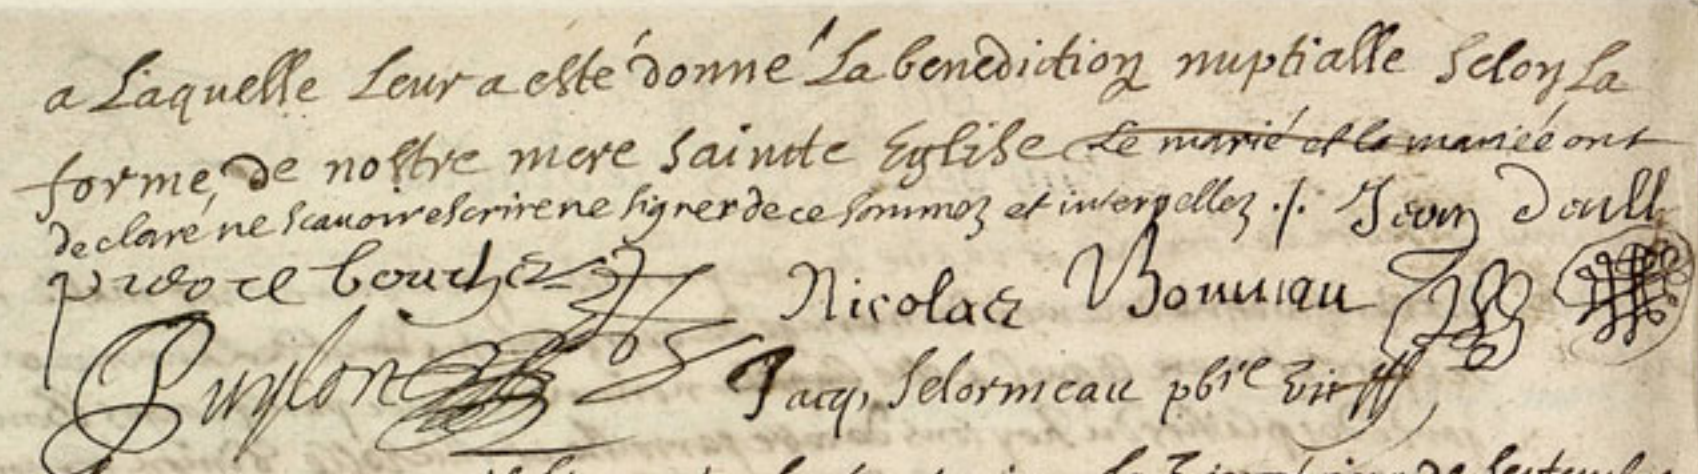 a Laquelle Leur a esté donné La benediction nuptialle Selon La
forme, de nostre mere Saincte Eglise Le marié et la mariée ont
declaré ne scauoir escrire ne signer de ce sommez et interpellez ./. Jean
Nicolas
Jacq, Selormeau pbre vic